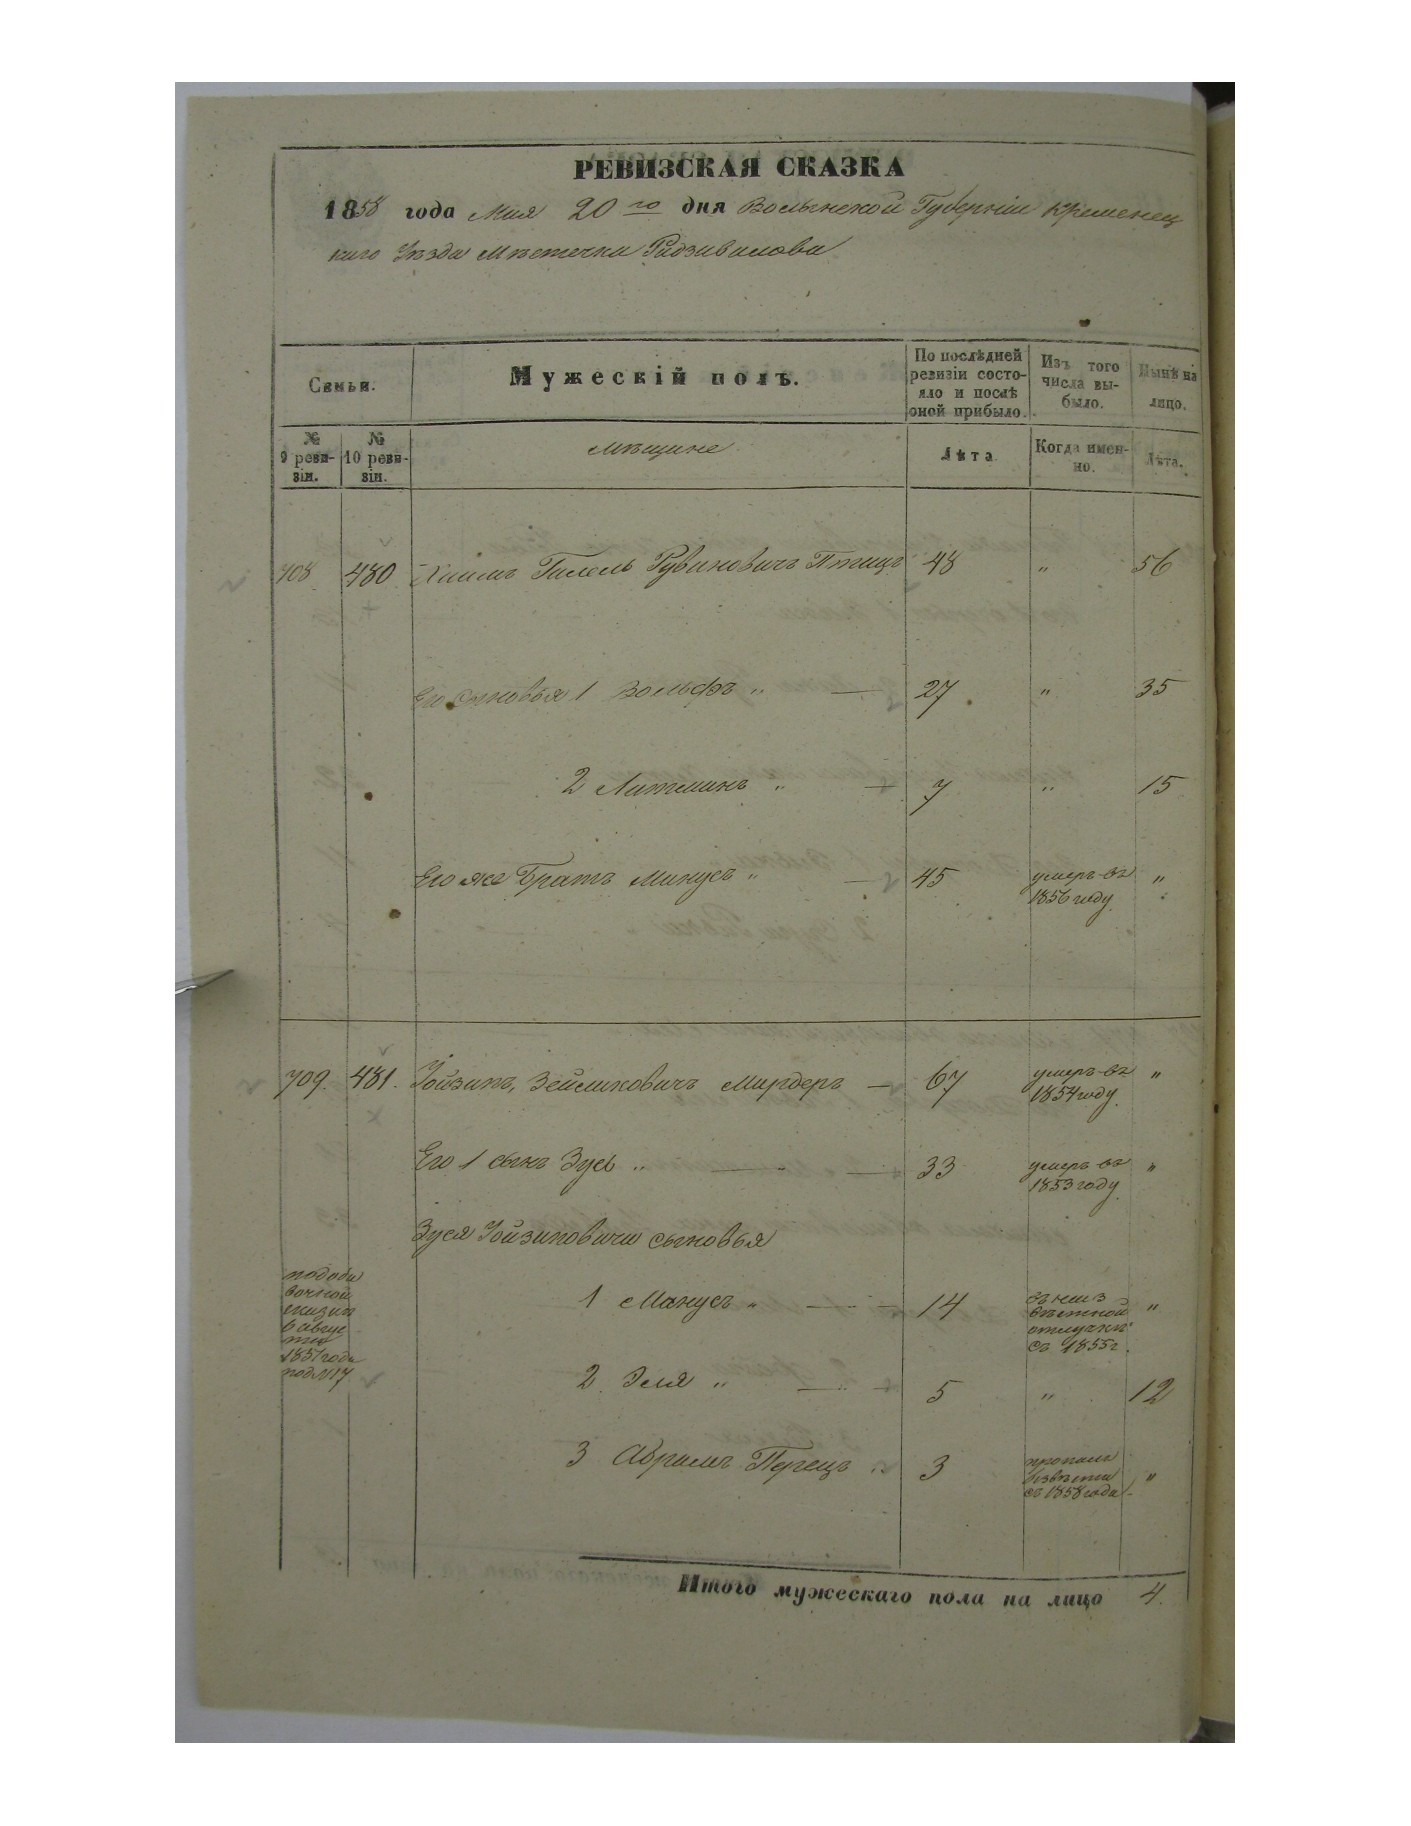 РЕВИЗСКАЯ СКАЗКА
1858 года Мая 20 го дня Волынской Губерніи Кременец
каго Уѣзда Мѣстечка Радзивилова
Семьи.
Мужескій полъ.
По послѣдней
ревизіи состо-
яло и послѣ
оной прибыло.
Изъ того
числа вы-
было.
Нынѣ на
лицо.
№
9 реви-
зіи.
№
10 реви-
зіи.
Мѣщане
Лѣта
Когда имен-
но.
Лѣта.
708 480 Хаимъ Гилель Рувиновичъ Птицъ 48 " 56
Его сыновья 1 Вольфъ " — 27 " 35
2 Литманъ " — 7 " 15
Его же Братъ Манусъ " — 45 умеръ въ "
1856 году
709. 481. Іойзипъ, Зейликовичъ Мардеръ — 67 умеръ въ "
1854 году
Его 1 сынъ Зусь " — — 33 умеръ въ "
1853 году
Зуся Іойзиповича сыновья
по доба
вочной
сказки
6 авгус
та
1851 года
под №17
1 Манусъ " — — 14
въ неиз
вѣстной
отлучкѣ
съ 1855 г. "
2 Эля " — — 5 " 12
3 Абрамъ Перецъ " 3
пропалъ
безвѣсти
съ 1858 года "
Итого мужескаго пола на лицо 4.